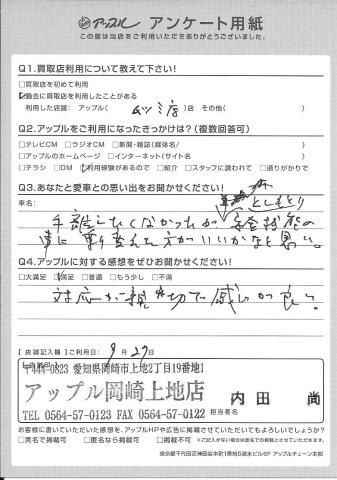 アップル アンケート用紙
この度は当店をご利用いただきありがとうございました。
Q1.買取店利用について教えて下さい!
□買取店を初めて利用
□過去に買取店を利用したことがある
利用した店舗: アップル( 店)店 その他( )
Q2.アップルをご利用になったきっかけは?(複数回答可)
□テレビCM □ラジオCM □新聞・雑誌(媒体名/ )
□アップルのホームページ □インターネット(サイト名 )
□チラシ □DM □利用経験があるので □紹介 □スタッフに誘われて □通りがかりで
Q3.あなたと愛車との思い出をお聞かせください!
車名:
手離したくなかったが 安全技能の
車に 乗り変えた方がいいかなと思い。
Q4.アップルに対する感想をぜひお聞かせください!
□大満足 □満足 □普通 □もう少し □不満
対応が親切で感じが良い。
【店舗記入欄】ご利用日: 9月27日
〒444-0823 愛知県岡崎市上地2丁目19番地1
アップル岡崎上地店
TEL 0564-57-0123 FAX 0564-57-0122
担当者名
内田 尚
お客様に書いていただいた感想を、アップルHPや広告に掲載させていただいてもよろしいでしょうか?
□実名で掲載可 □匿名なら掲載可 □掲載不可 ※ご記入がない場合は匿名での掲載とさせていただきます。
東京都千代田区神田岩本町1番地5清水ビル6F アップルチェーン本部